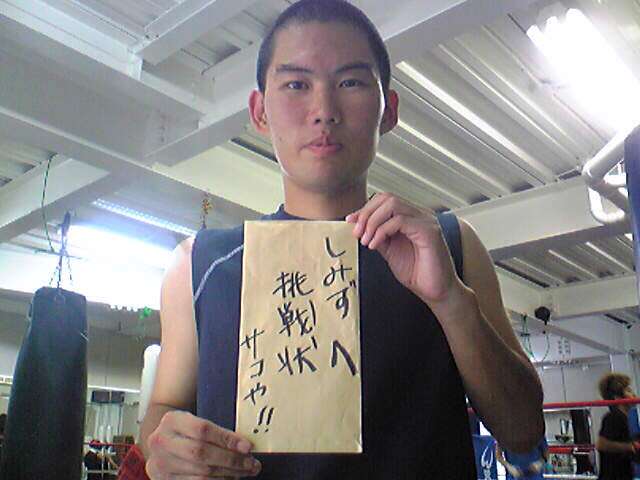 しみずへ
挑戦状
サコや!!